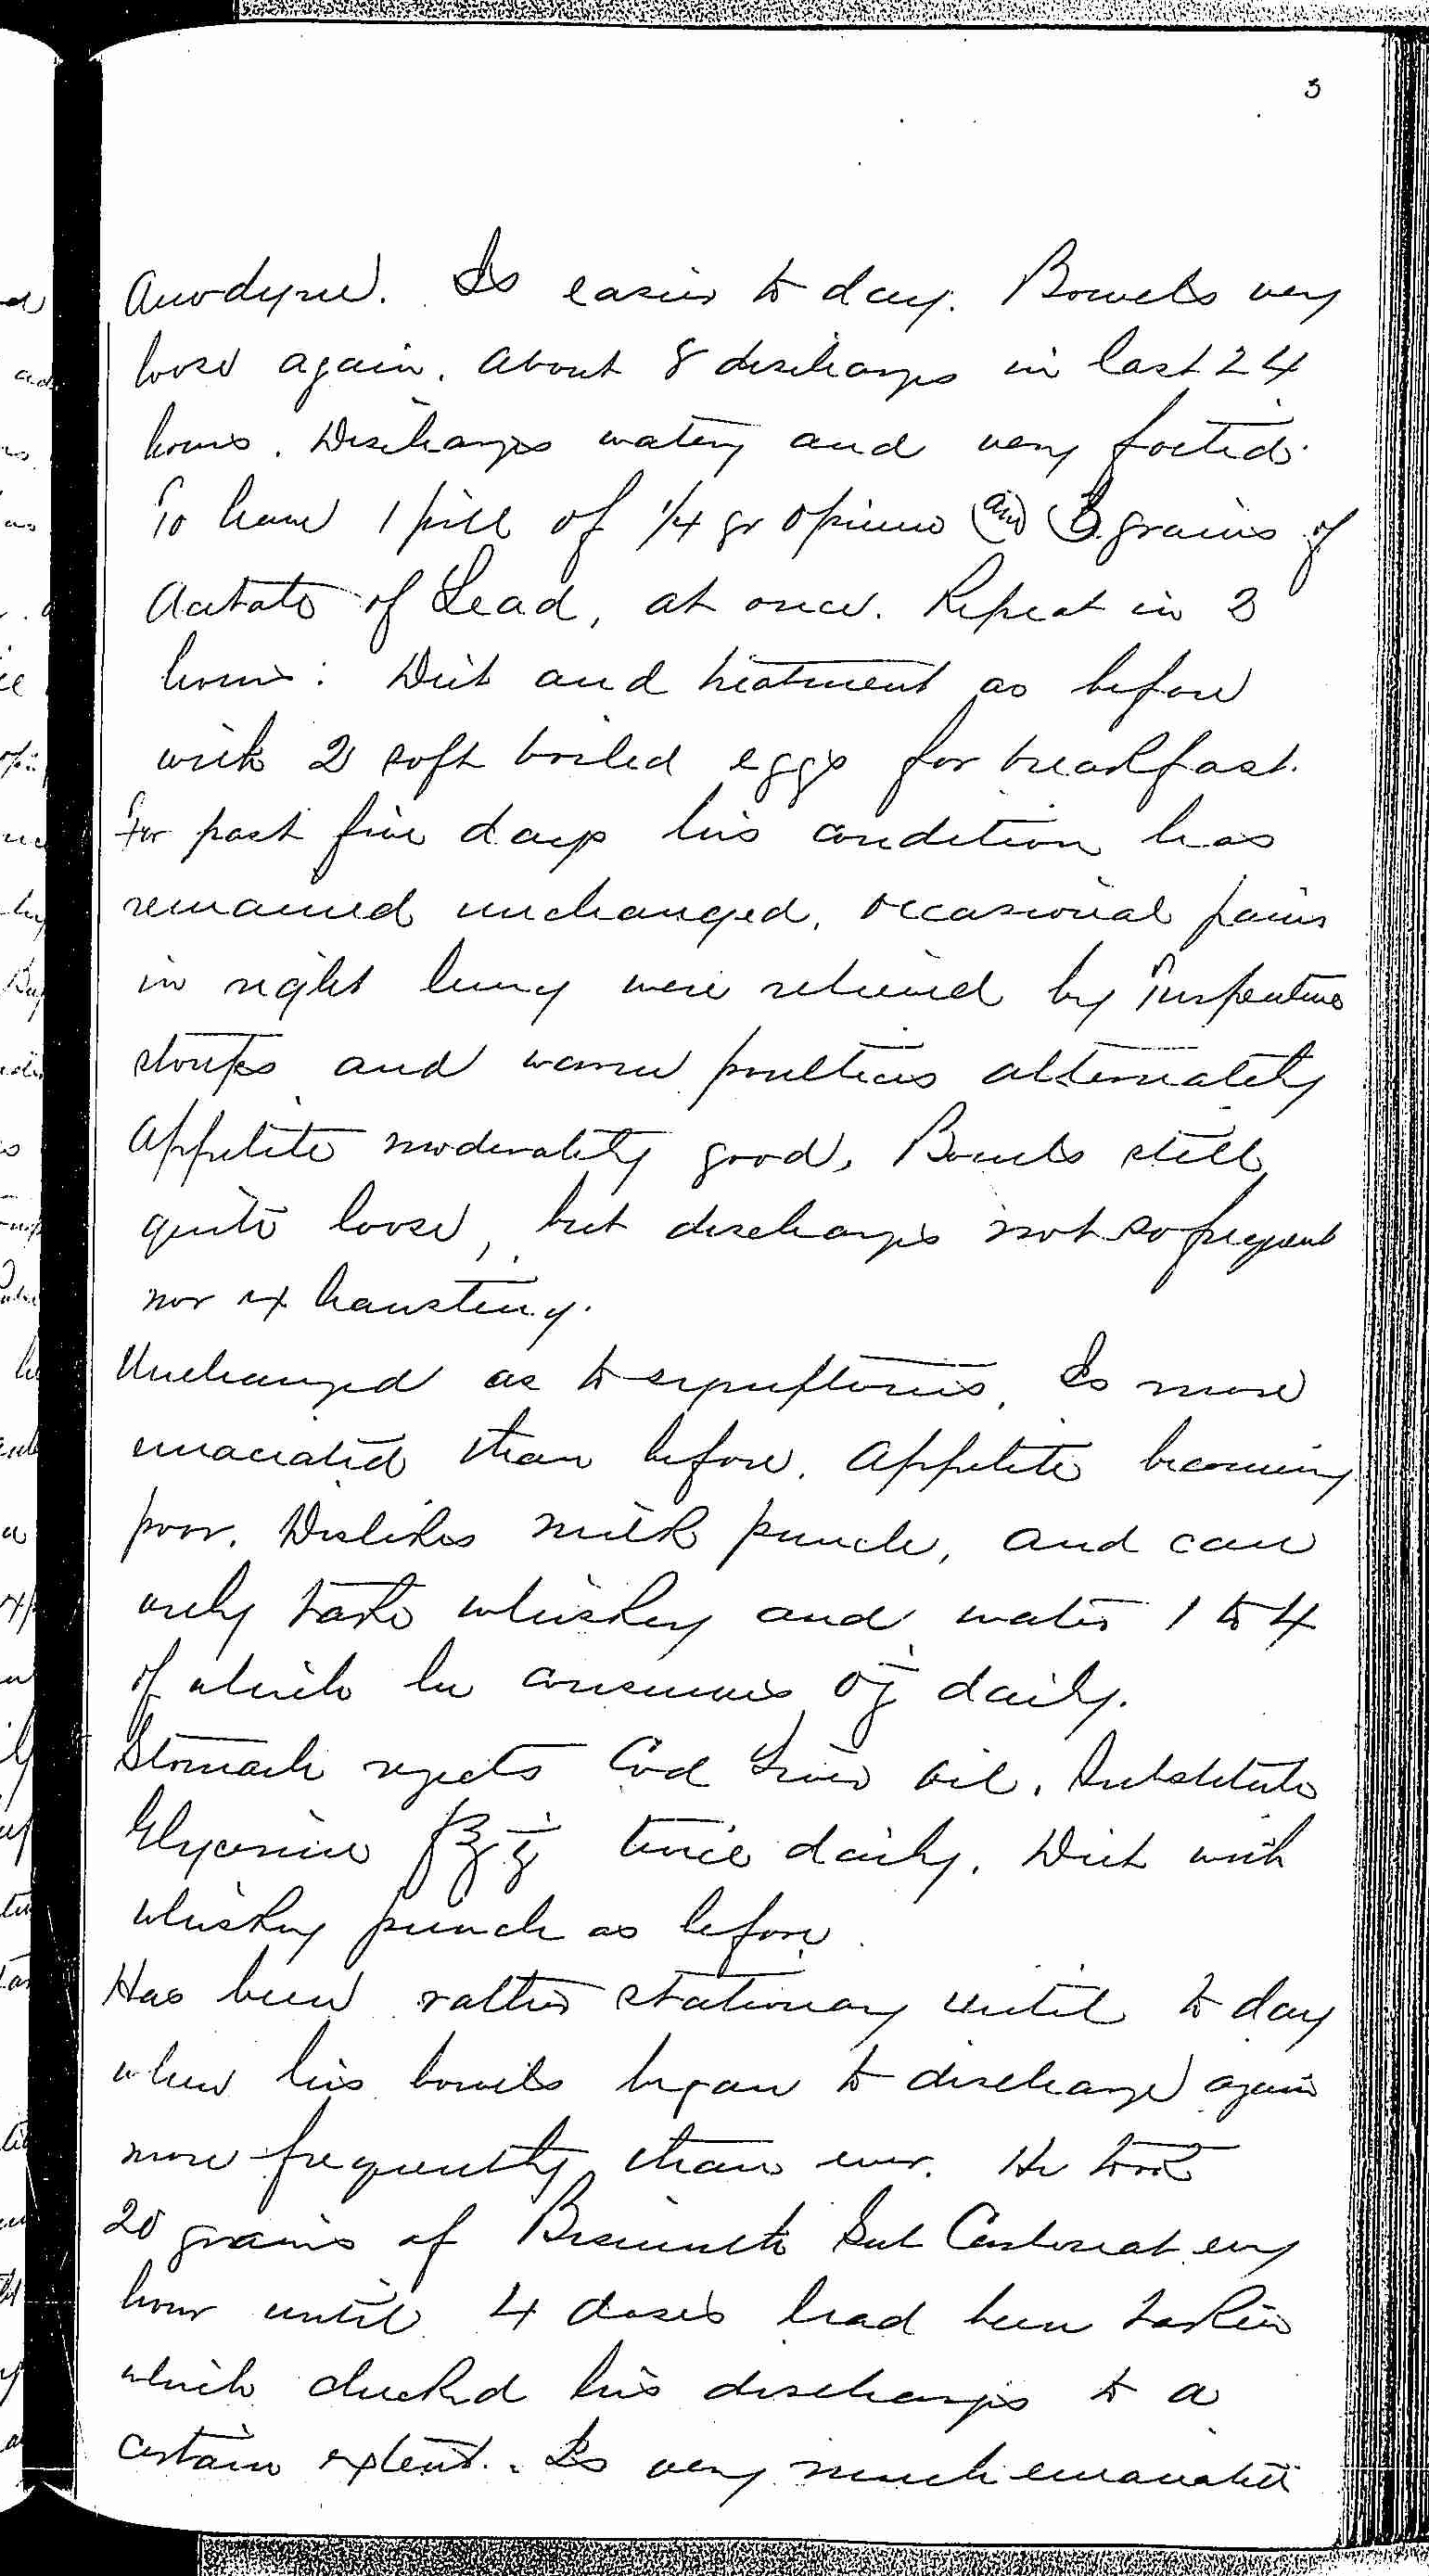 3
Anodyne. Is easier to day. Bowels very
loose again. About 8 discharges in last 24
hours. Discharges watery and very foetid.
To have 1 pill of 1/4 gr opium and 3 grains of
Acetate of Lead, at once. Repeat in 2
hours: Diet and treatment as before
with 2 soft boiled eggs for breakfast.
For past five days his condition has
remained unchanged, occasional pains
in right lung were relieved by Turpentine
stoups and warm poultices alternately
Appetite moderately good, Bowels still
quite loose, but discharges not so frequent
nor exhausting.
Unchanged as to symptoms. Is more
emaciated than before. Appetite becoming
poor. Dislikes milk punch, and can
only take whiskey and water 1 to 4
of which he consumes Oj daily.
Stomach rejects Cod Liver Oil. Substitute
Glycerine f℥j twice daily. Diet with
whiskey punch as before.
Has been rather stationary until to day
when his bowels began to discharge again
more frequently than ever. He took
20 grains of Bismuth Sub Carbonat evy
hour until 4 doses had been taken
which checked his discharges to a
certain extent. Is very much emaciated